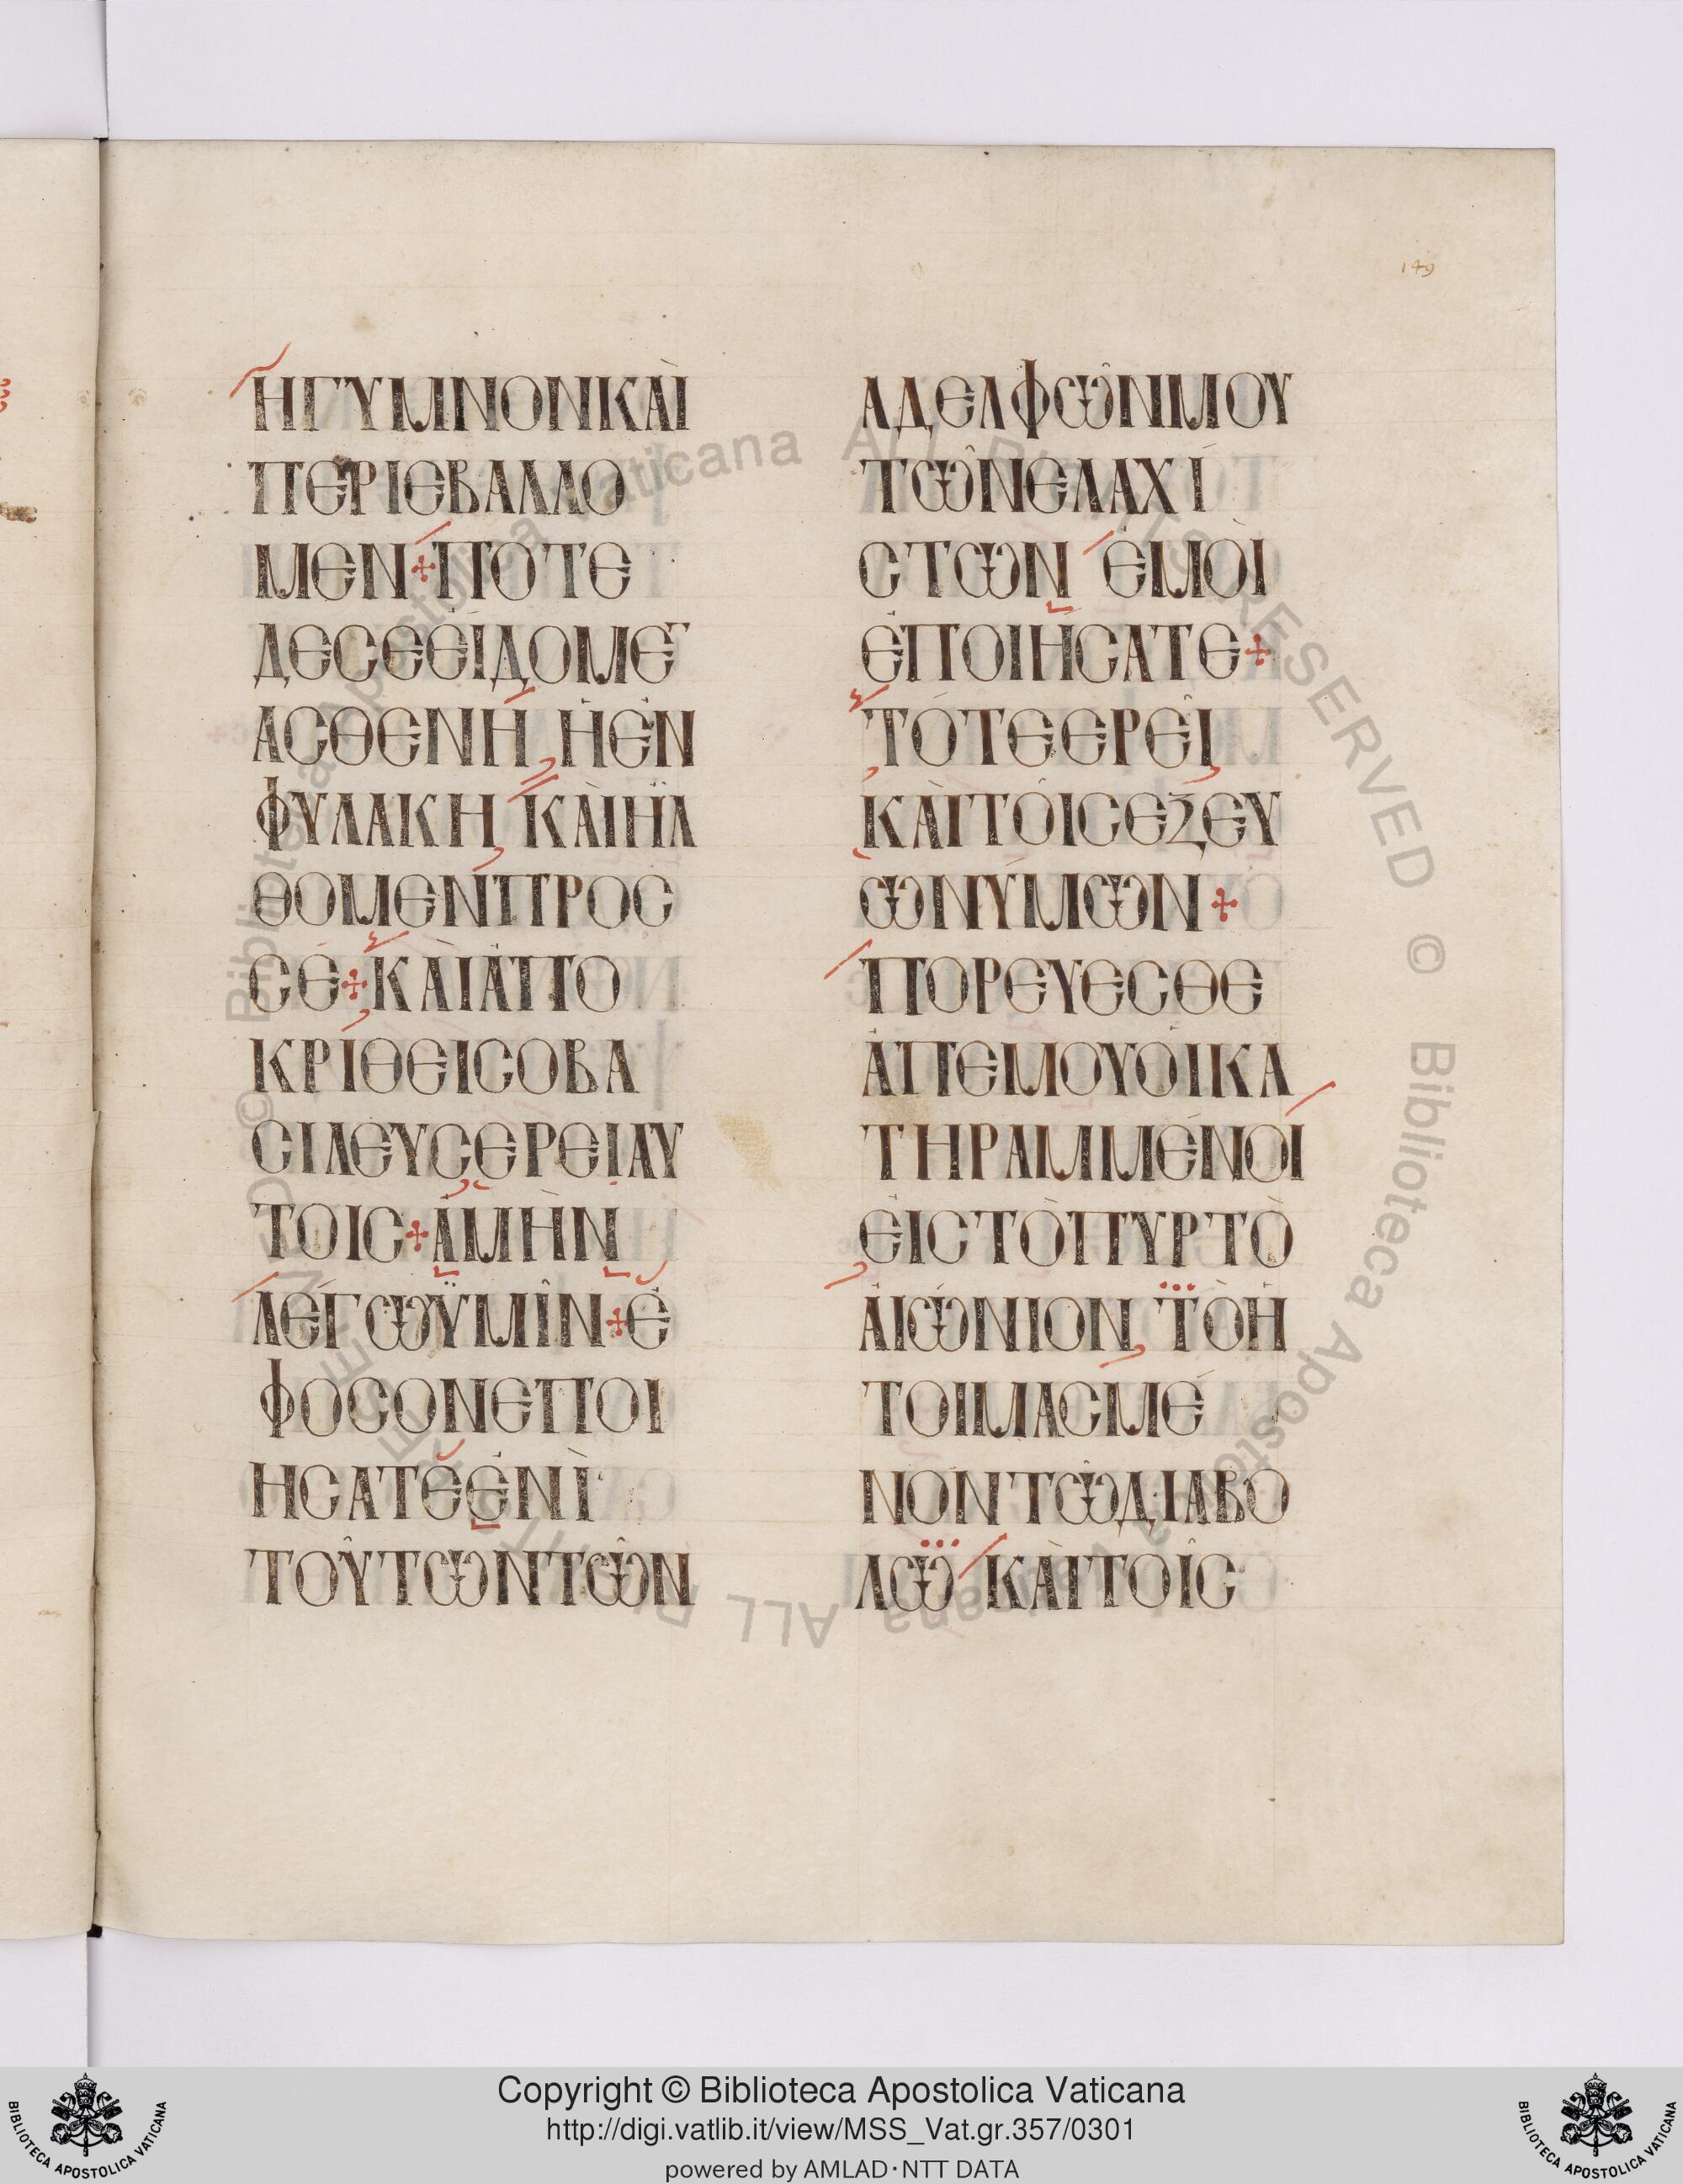 149
ΗΓΥΜΝΟΝΚΑῚ
ΠΕΡΙΕΒΑΛΛΟ
ΜΕΝ+ΠΟΤΕ
ΔΕCΕΕΊΔΟΜΕ̄
ΑCΘΕΝΗ͂,ἨἘΝ
ΦΥΛΑΚΗ,ΚΑῚΗΛ
ΘΟΜΕΝΠΡΟC
CΕ+ΚΑῚἈΠΟ
ΚΡΙΘΕΙCΟΒΑ
CΙΛΕΥCΕΡΕΙΑΥ
ΤΟΙC+ἈΜῊΝ
ΛΈΓΩΫΜΙ͂Ν+Ἐ
ΦΟCΟΝΕΠΟΙ
ΗCΑΤΕἙΝῚ
ΤΟΎΤΩΝΤΩ͂Ν
ΑΔΕΛΦΩ͂ΝΜΟΥ
ΤΩ͂ΝΕΛΑΧΊ
CΤΩΝ ἘΜΟῚ
ἘΠΟΙΉCΑΤΕ+
ΤΌΤΕΕΡΕΙ͂
ΚΑῚΤΟΙ͂CΕΞΕΥ
ΩΝΎΜΩΝ+
ΠΟΡΕΥΕCΘΕ
ἈΠΕΜΟΥΟἹΚΑ
ΤΗΡΑΜΜΈΝΟΙ
ἘΙCΤῸΠΥΡΤῸ
ἈΙΏΝΙΟΝ,ΤῸἩ
ΤΟΙΜΑCΜΈ
ΝΟΝΤΩ͂ΔΙΑΒΌ
ΛΩ ΚΑῚΤΟΙ͂C
Copyright © Biblioteca Apostolica Vaticana
http://digi.vatlib.it/view/MSS_Vat.gr.357/0301
powered by AMLAD·NTT DATA
BIBLIOTECA APOSTOLICA VATICANA
BIBLIOTECA APOSTOLICA VATICANA